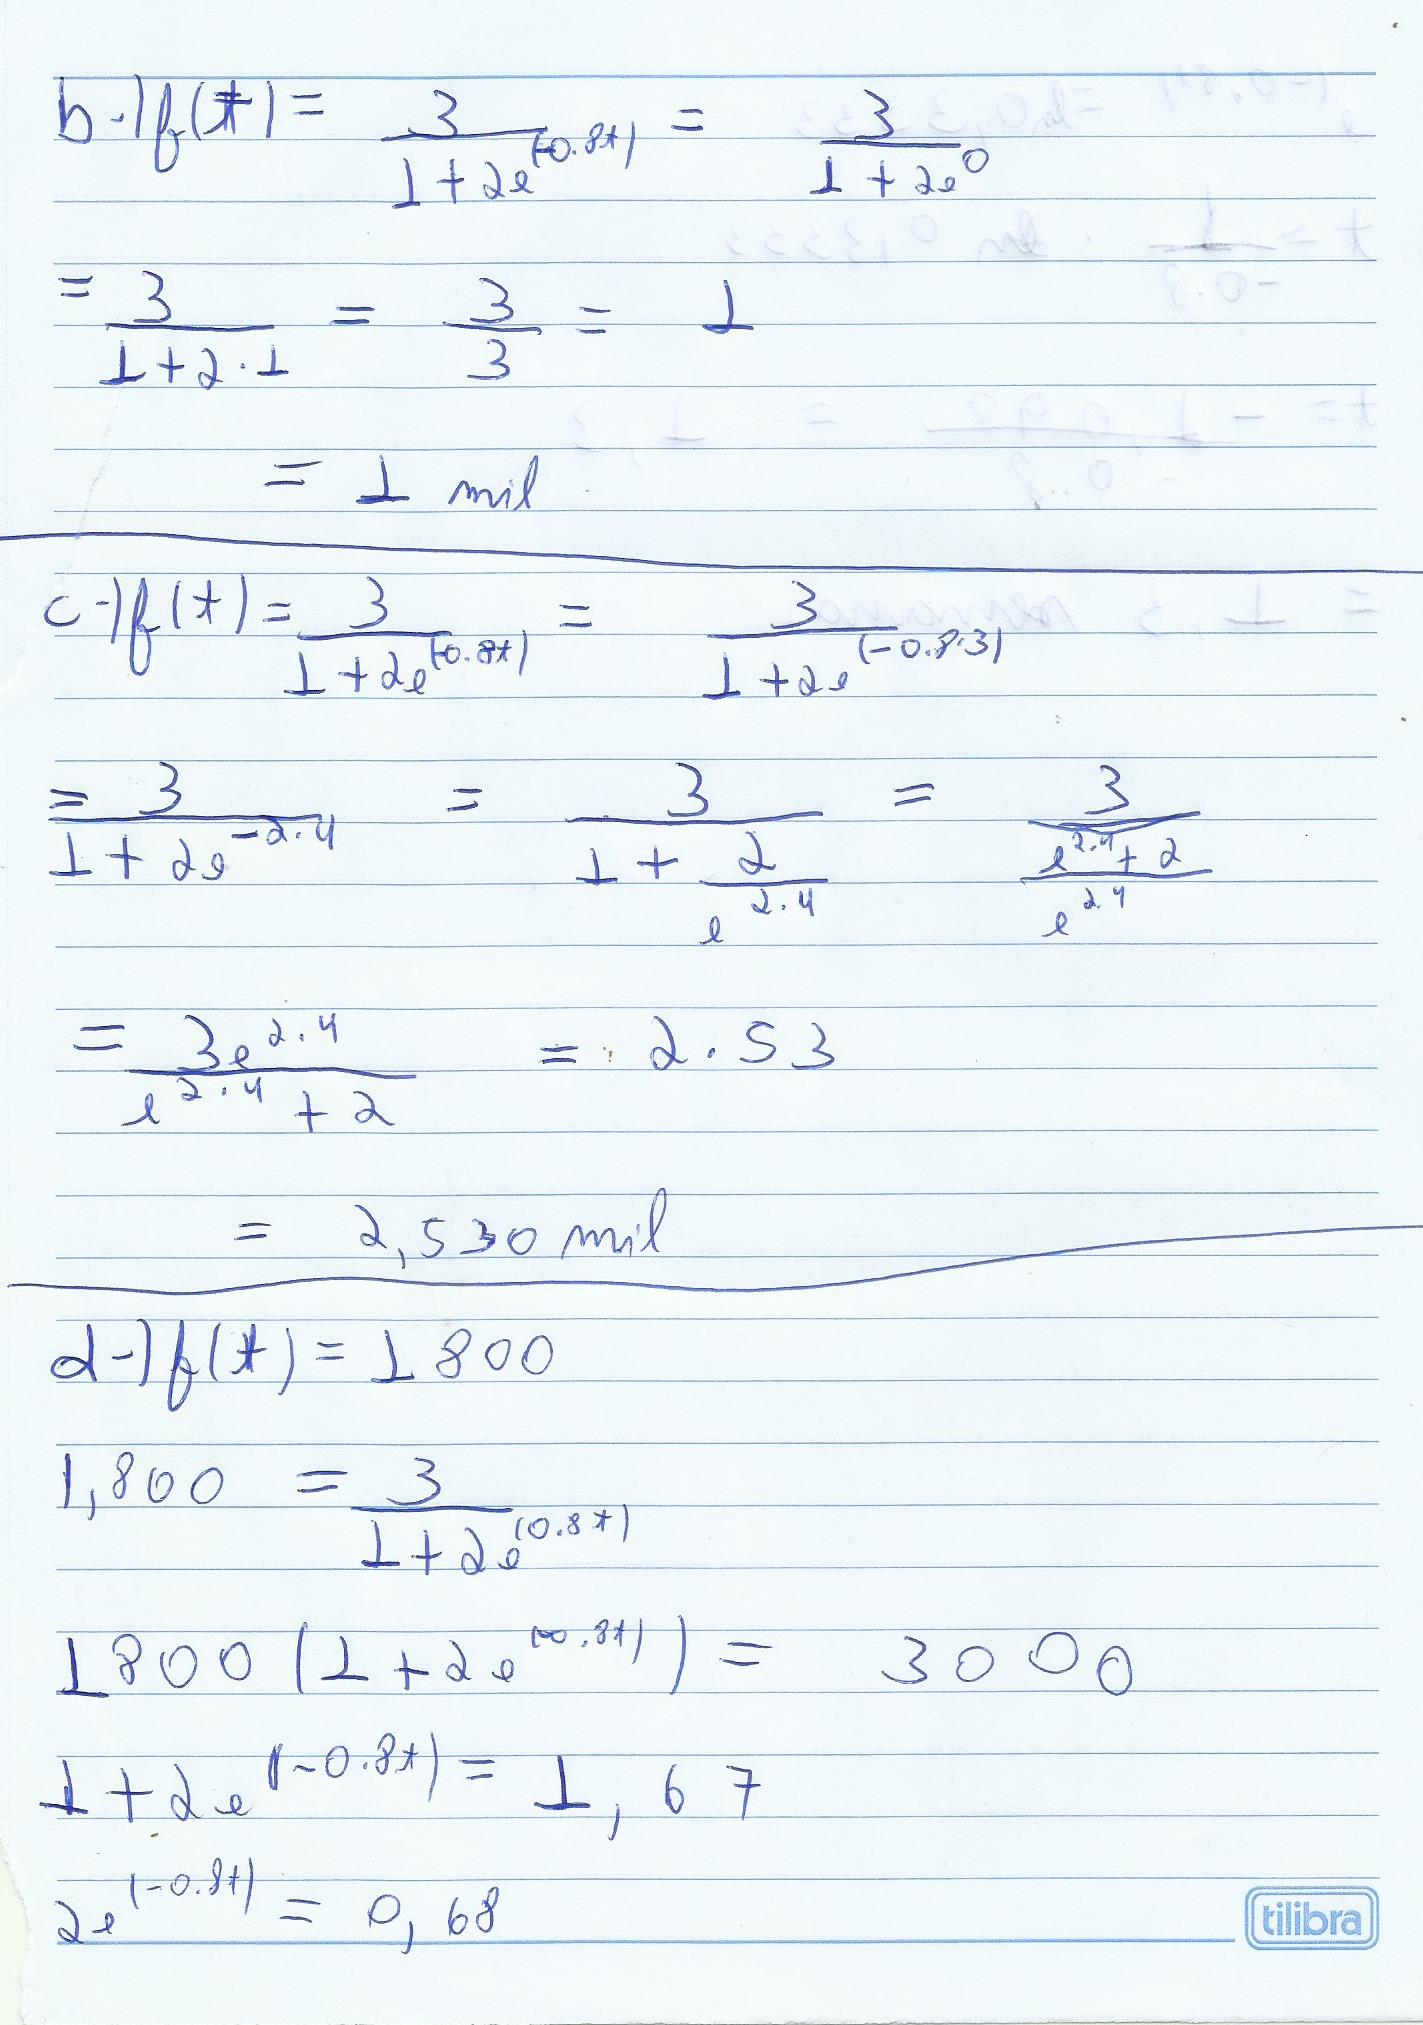 b-) f(t) = 3 / 1+2e^(-0.8t) = 3 / 1+2e^0
= 3 / 1+2.1 = 3/3 = 1
= 1 mil
c-) f(t) = 3 / 1+2e^(-0.8t) = 3 / 1+2e^(-0.8.3)
= 3 / 1+2e^-2.4 = 3 / 1 + 2/e^2.4 = 3 / e^2.4 + 2 / e^2.4
= 3e^2.4 / e^2.4 + 2 = 2.53
= 2,530 mil
d-) f(t) = 1800
1,800 = 3 / 1+2e^(0.8t)
1800 (1+2e^(-0.8t)) = 3000
1+2e^(-0.8t) = 1,67
2e^(-0.8t) = 0,68
tilibra